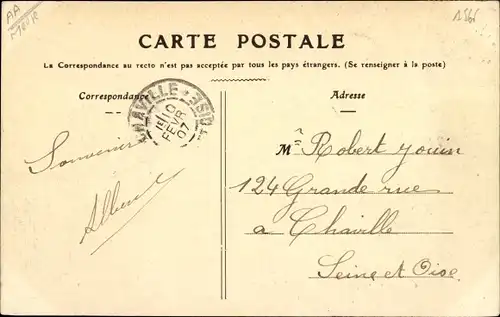 AA
Meuse
1566
CARTE POSTALE
La Correspondance au recto n'est pas acceptée par tous les pays étrangers. (Se renseigner à la poste)
Correspondance
CHAVILLE
10
FEVR
07
Adresse
Souvenir
Albert
Mr Robert Jouin
124 Grande rue
a Chaville
Seine et Oise